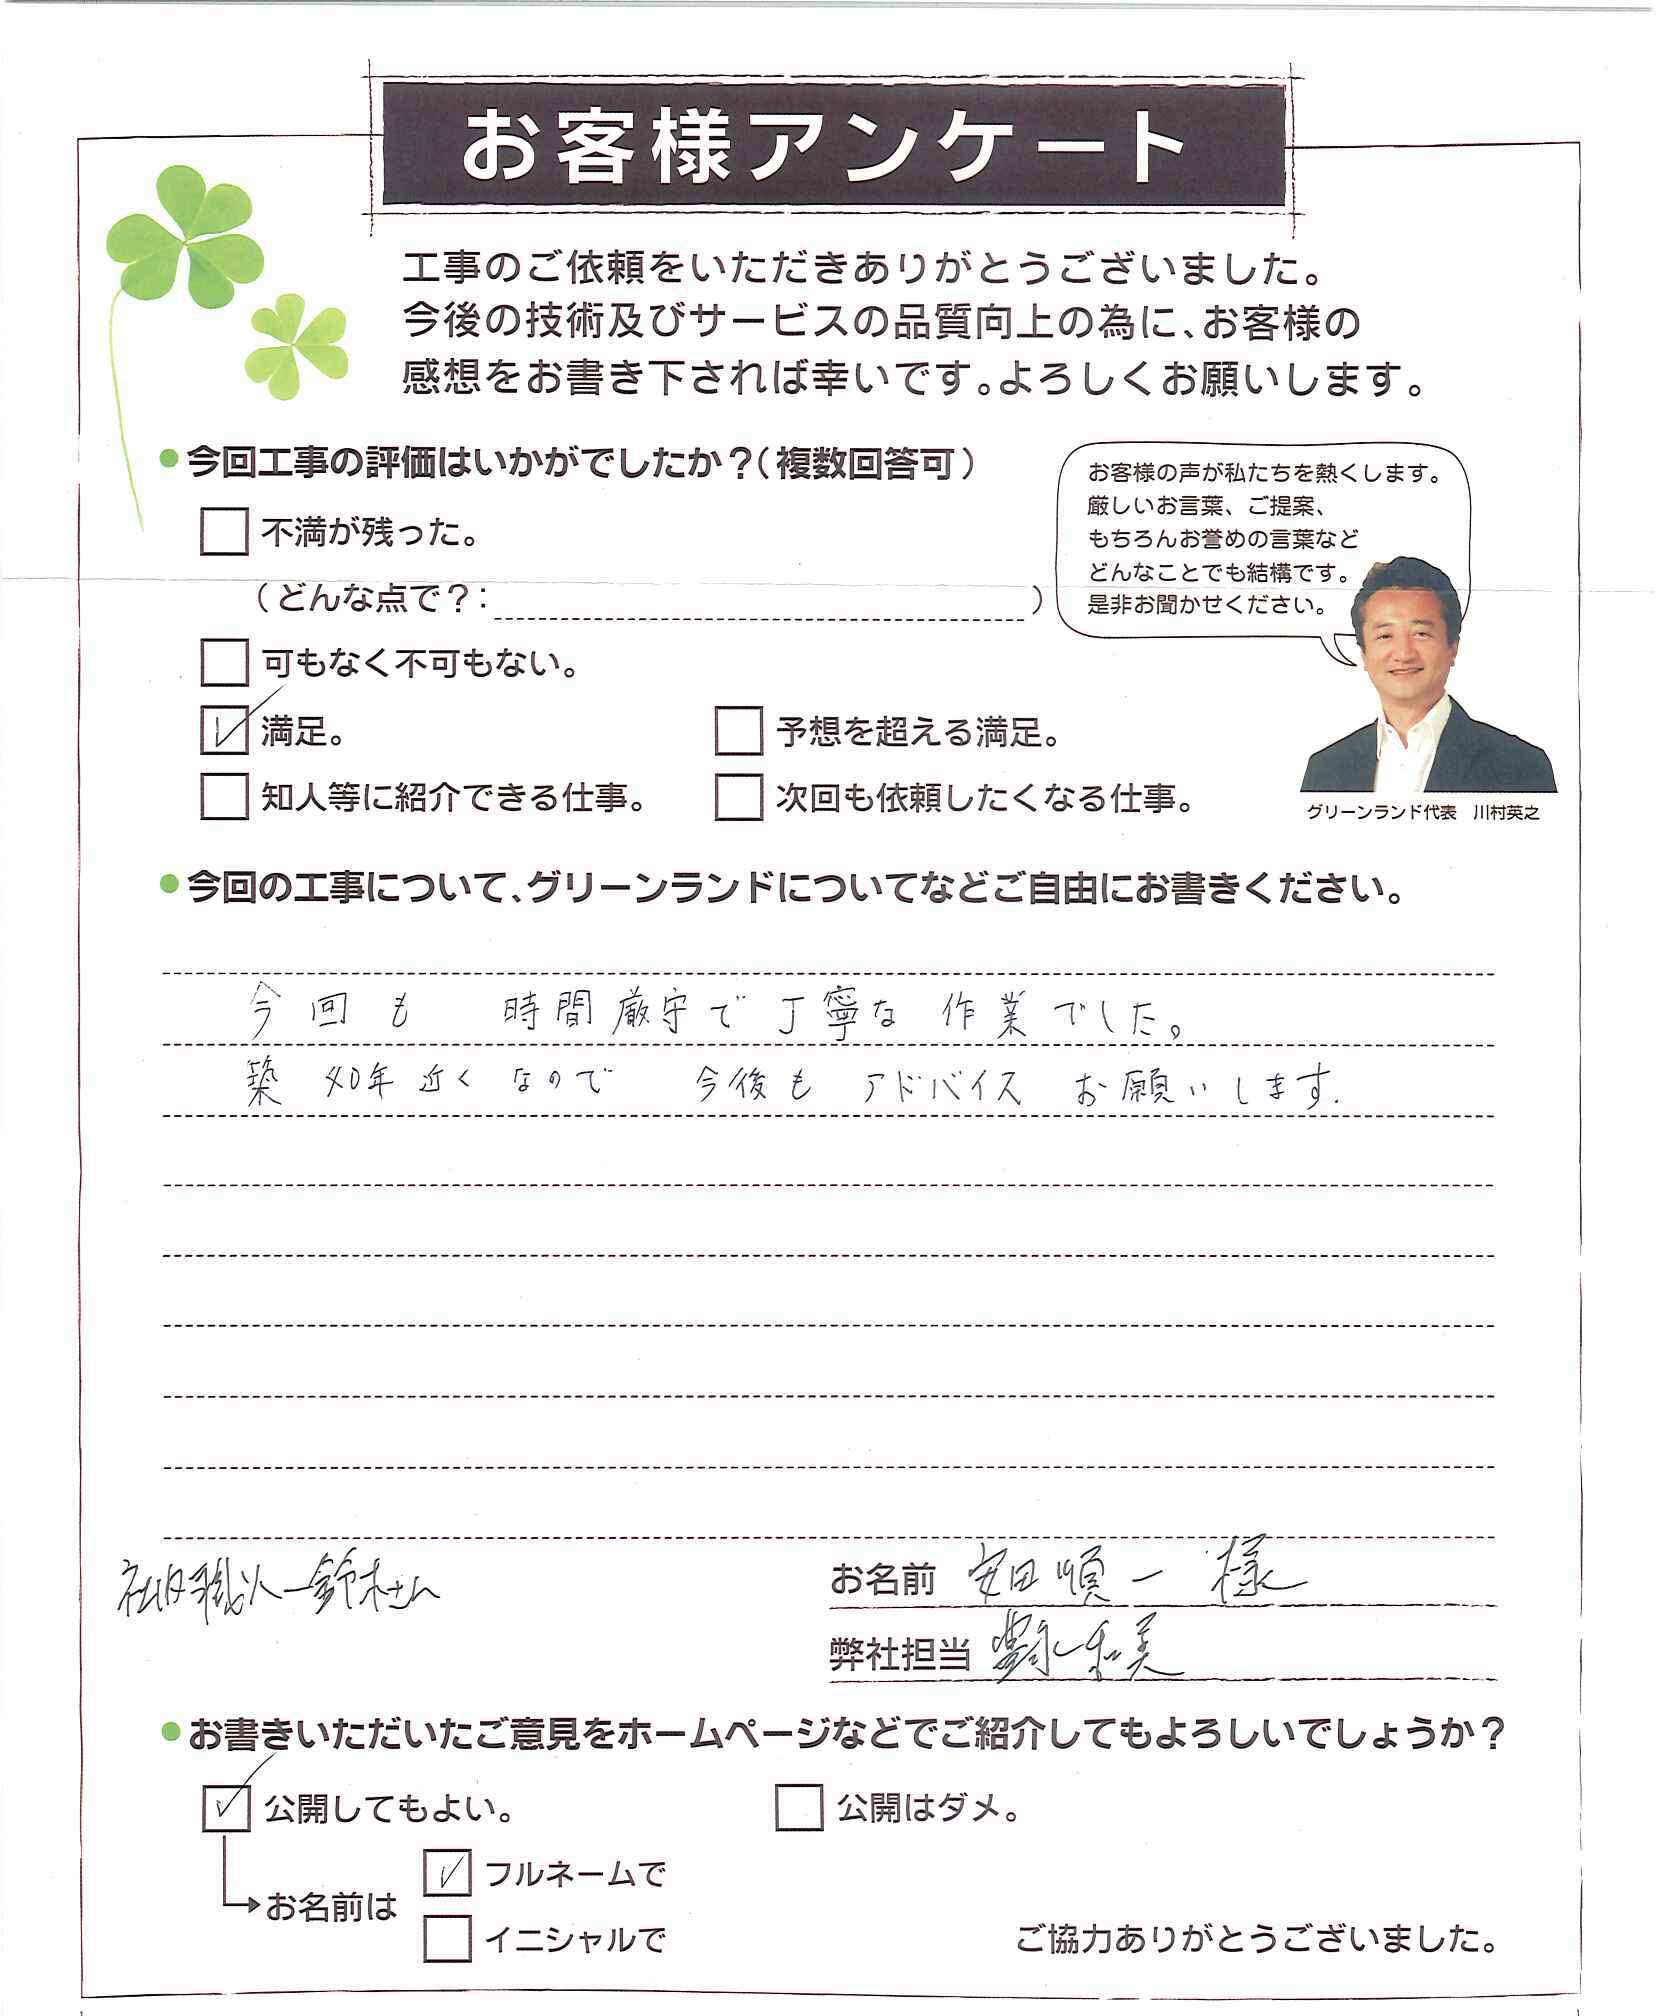 お客様アンケート
工事のご依頼をいただきありがとうございました。
今後の技術及びサービスの品質向上の為に、お客様の
感想をお書き下されば幸いです。よろしくお願いします。
●今回工事の評価はいかがでしたか？（複数回答可）
お客様の声が私たちを熱くします。
厳しいお言葉、ご提案、
もちろんお誉めの言葉など
どんなことでも結構です。
是非お聞かせください。
不満が残った。
（どんな点で？：　）
可もなく不可もない。
満足。
予想を超える満足。
知人等に紹介できる仕事。
次回も依頼したくなる仕事。
グリーンランド代表　川村英之
●今回の工事について、グリーンランドについてなどご自由にお書きください。
今回も 時間厳守で丁寧な作業でした。
築40年近くなので 今後も アドバイス お願いします.
社内職人―鈴木さん
お名前 安田順一 様
弊社担当
●お書きいただいたご意見をホームページなどでご紹介してもよろしいでしょうか？
公開してもよい。
公開はダメ。
お名前は
フルネームで
イニシャルで
ご協力ありがとうございました。